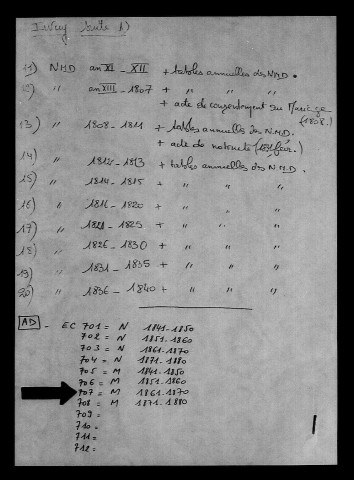 Ivry suite 1)
11) NMD an XI - XII + tables annuelles des NMD.
12) " an XIII - 1807 + " " "
+ acte de consentement au Mariage (1808.)
13) " 1808 - 1811 + tables annuelles des NMD.
+ acte de notoriété
14) " 1812 - 1813 + tables annuelles des NMD.
15) " 1814 - 1815 + " " "
16) " 1816 - 1820 + " " "
17) " 1821 - 1825 + " " "
18) " 1826 - 1830 + " " "
19) " 1831 - 1835 + " " "
20) " 1836 - 1840 + " " "
AD - EC 701 = N 1841-1850
702 = N 1851-1860
703 = N 1861-1870
704 = N 1871-1880
705 = M 1841-1850
706 = M 1851-1860
707 = M 1861-1870
708 = M 1871-1880
709 =
710 =
711 =
712 =